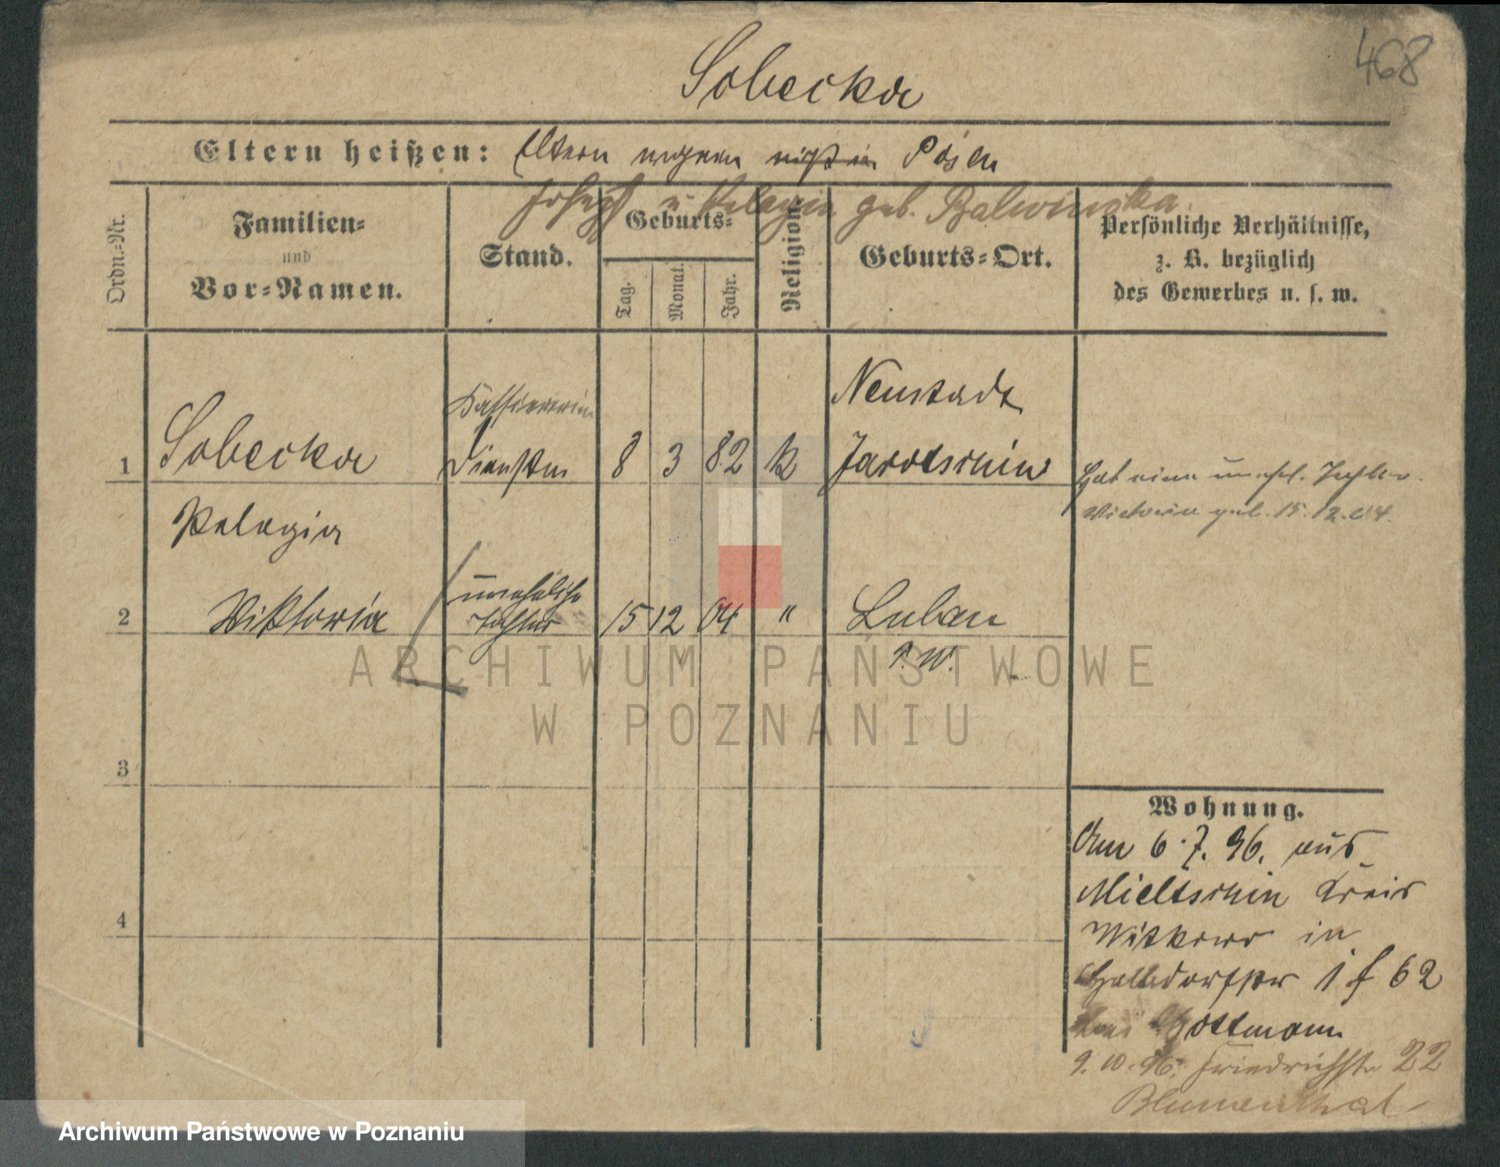 468
Sobecka
Eltern heißen: Eltern wohnen nicht in Posen
Joseph u. Pelagia geb. Balwinska
Ordn.-Nr.
Familien-
und
Vor-Namen.
Stand.
Geburts-
Tag.
Monat.
Jahr.
Religion.
Geburts-Ort.
Persönliche Verhältnisse,
z. B. bezüglich
des Gewerbes u. s. w.
Kassiererin
Neustadt
1 Sobecka Dienstm 8 3 82 k Jarotschin
Hat eine unehl. Tochter
Victoria geb. 15.12.04.
Pelagia
uneheliche
2 Wiktoria Tochter 15 12 04 " Luban
P. W.
3
4
Wohnung.
Am 6.7.96. aus
Mieltschin Kreis
Witkowo in
Halbdorfstr 1 f 62
bei Gottmann
9.10.96. Friedrichstr 22
Blumenthal
ARCHIWUM PAŃSTWOWE
W POZNANIU
Archiwum Państwowe w Poznaniu